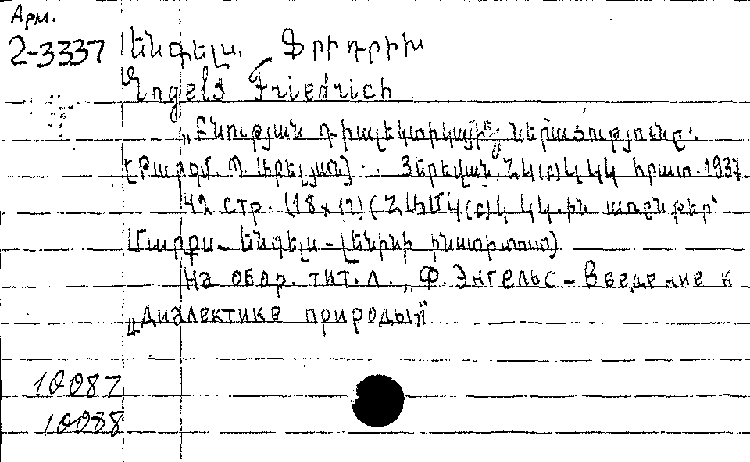 Арм.
2-3337 Ենգելս, Ֆրիդրիխ
Engels Friedrich
„Բնության դիալեկտիկայի“ ներածությունը.
[Թարգմ. Պ. ]. Յերևան, ՀԿ(բ)Կ ԿԿ հրատ. 1937
42 стр. (18x12) (ՀամԿ(բ)Կ ԿԿ-ին առընթեր
Մարքս-Ենգելս-Լենինի ինստիտուտ)
На обор. тит. л.: Ф. Энгельс - Введение к
„Диалектике природы“
10087
10088